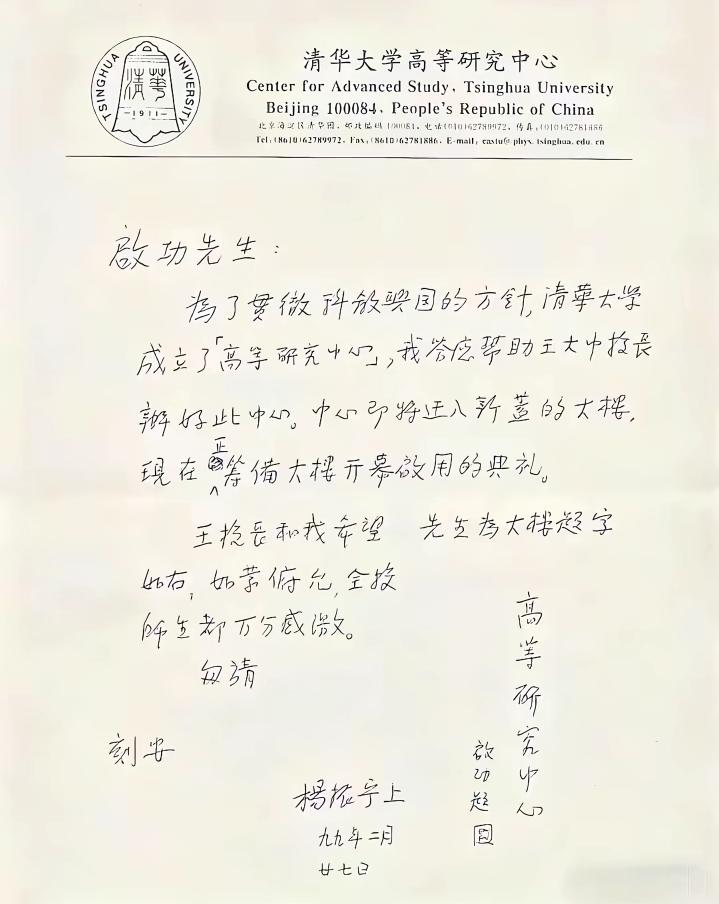 TSINGHUA UNIVERSITY
清華
-1911-
清华大学高等研究中心
Center for Advanced Study, Tsinghua University
Beijing 100084, People's Republic of China
北京海淀区清华园, 邮政编码 100084, 电话(010)62789972, 传真:(010)62781886
Tel:(8610)62789972, Fax:(8610)62781886, E-mail: castu@phys.tsinghua.edu.cn
啟功先生:
為了貫徹科教興国的方針,清華大学
成立了「高等研究中心」,我答应帮助王大中校長
辦好此中心。中心即将迁入新蓋的大樓,
現在正籌備大樓开幕啟用的典礼。
王校長和我希望 先生為大樓題字
如右,如蒙俯允,全校
師生都万分感激。
匆請
刻安
楊振宁上
九九年二月
廿七日
高等研究中心
啟功題